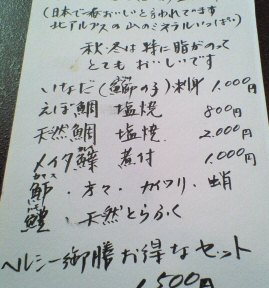 (日本で一番おいしいと言われています
北アルプスの山のミネラルいっぱい)
秋・冬は特に脂がのって
とてもおいしいです
いなだ(鰤の子)刺身 1.000円
えぼ鯛 塩焼 800円
天然鯛 塩焼 2.000円
メイタ鰈 煮付 1.000円
・カワリ・蛸
・天然とらふく
ヘルシー御膳お得なセット
1.500円